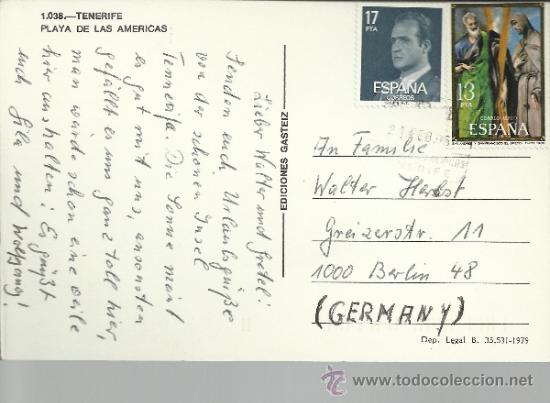 1.038.—TENERIFE
PLAYA DE LAS AMERICAS
Lieber Walter und Gretel!
Senden euch Urlaubsgrüße
von der schönen Insel
Tenneriffa. Die Sonne meint
es gut mit uns, ansonsten
gefällt es uns ganz toll hier,
man würde schon eine weile
hier aushalten! Es grüßt
euch Lila und Wolfgang!
EDICIONES GASTEIZ
17
PTA
ESPAÑA
CORREOS
13
PTA
CORREO AEREO
ESPAÑA
An Familie
Walter Herbst
Greizerstr. 11
1000 Berlin 48
(GERMANY)
Dep. Legal B. 35.531-1979
www.todocoleccion.net